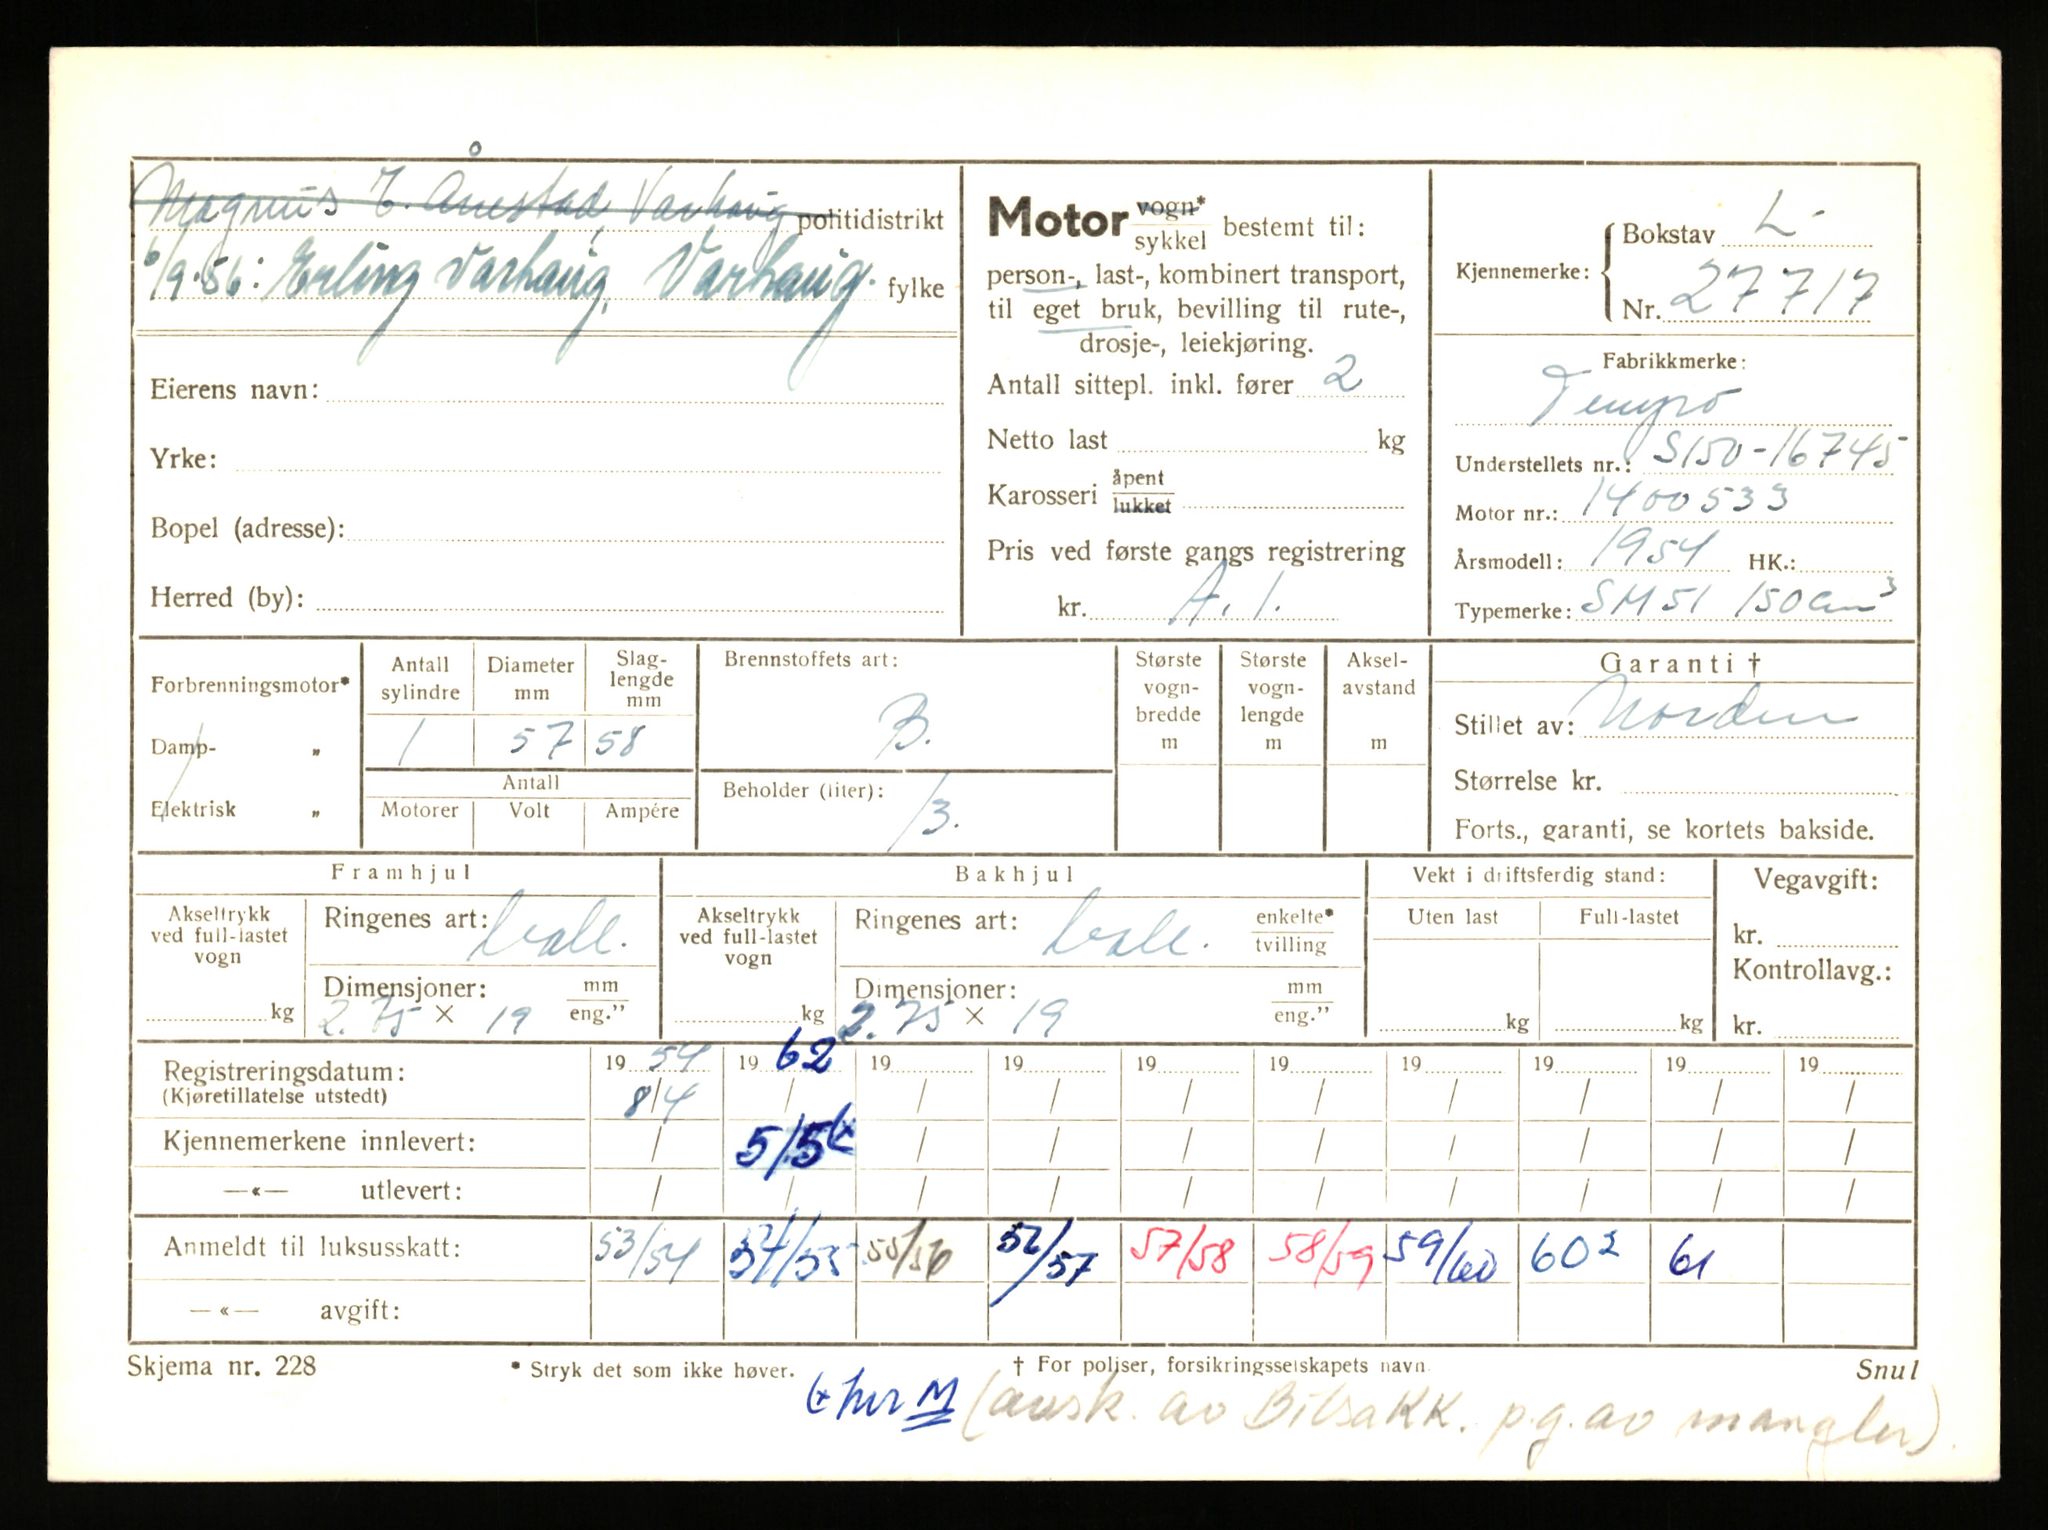 Magnus T. Ånestad, Varhaug politidistrikt
6/9-56: Erling Varhaug, Varhaug. fylke
Eierens navn:
Yrke:
Bopel (adresse):
Herred (by):
Motor vogn* sykkel bestemt til:
person-, last-, kombinert transport,
til eget bruk, bevilling til rute-,
drosje-, leiekjøring.
Antall sittepl. inkl. fører 2
Netto last kg
Karosseri åpent lukket
Pris ved første gangs registrering
kr. A. 1.
Kjennemerke: Bokstav L-
Nr. 27717
Fabrikkmerke:
Tempo
Understellets nr.: S150-16745
Motor nr.: 1400533
Årsmodell: 1954 HK.:
Typemerke: SM51 150cm³
Forbrenningsmotor*
Damp- „
Elektrisk „
Antall sylindre 1
Diameter mm 57
Slag-lengde mm 58
Antall
Motorer Volt Ampére
Brennstoffets art:
B.
Beholder (liter):
13.
Største vogn-bredde m
Største vogn-lengde m
Aksel-avstand m
Garanti †
Stillet av: Norden
Størrelse kr.
Forts., garanti, se kortets bakside.
Framhjul
Akseltrykk ved full-lastet vogn
kg
Ringenes art:
Dimensjoner: mm eng."
2.75 × 19
Bakhjul
Akseltrykk ved full-lastet vogn
kg
Ringenes art: enkelte* tvilling
Dimensjoner: mm eng."
2.75 × 19
Vekt i driftsferdig stand:
Uten last Full-lastet
kg kg
Vegavgift:
kr.
Kontrollavg.:
kr.
Registreringsdatum: 19 54 19 62 19 19 19 19 19 19 19 19
(Kjøretillatelse utstedt) 8/4 / / / / / / / / /
Kjennemerkene innlevert: / 5/5 / / / / / / / /
—«— utlevert: / / / / / / / / / /
Anmeldt til luksusskatt: 53/54 54/55 55/56 56/57 57/58 58/59 59/60 60² 61
—«— avgift:
Skjema nr. 228 * Stryk det som ikke høver. † For poliser, forsikringsselskapets navn Snul
M (avsk. av Bilsakk. p.g.av mangler).